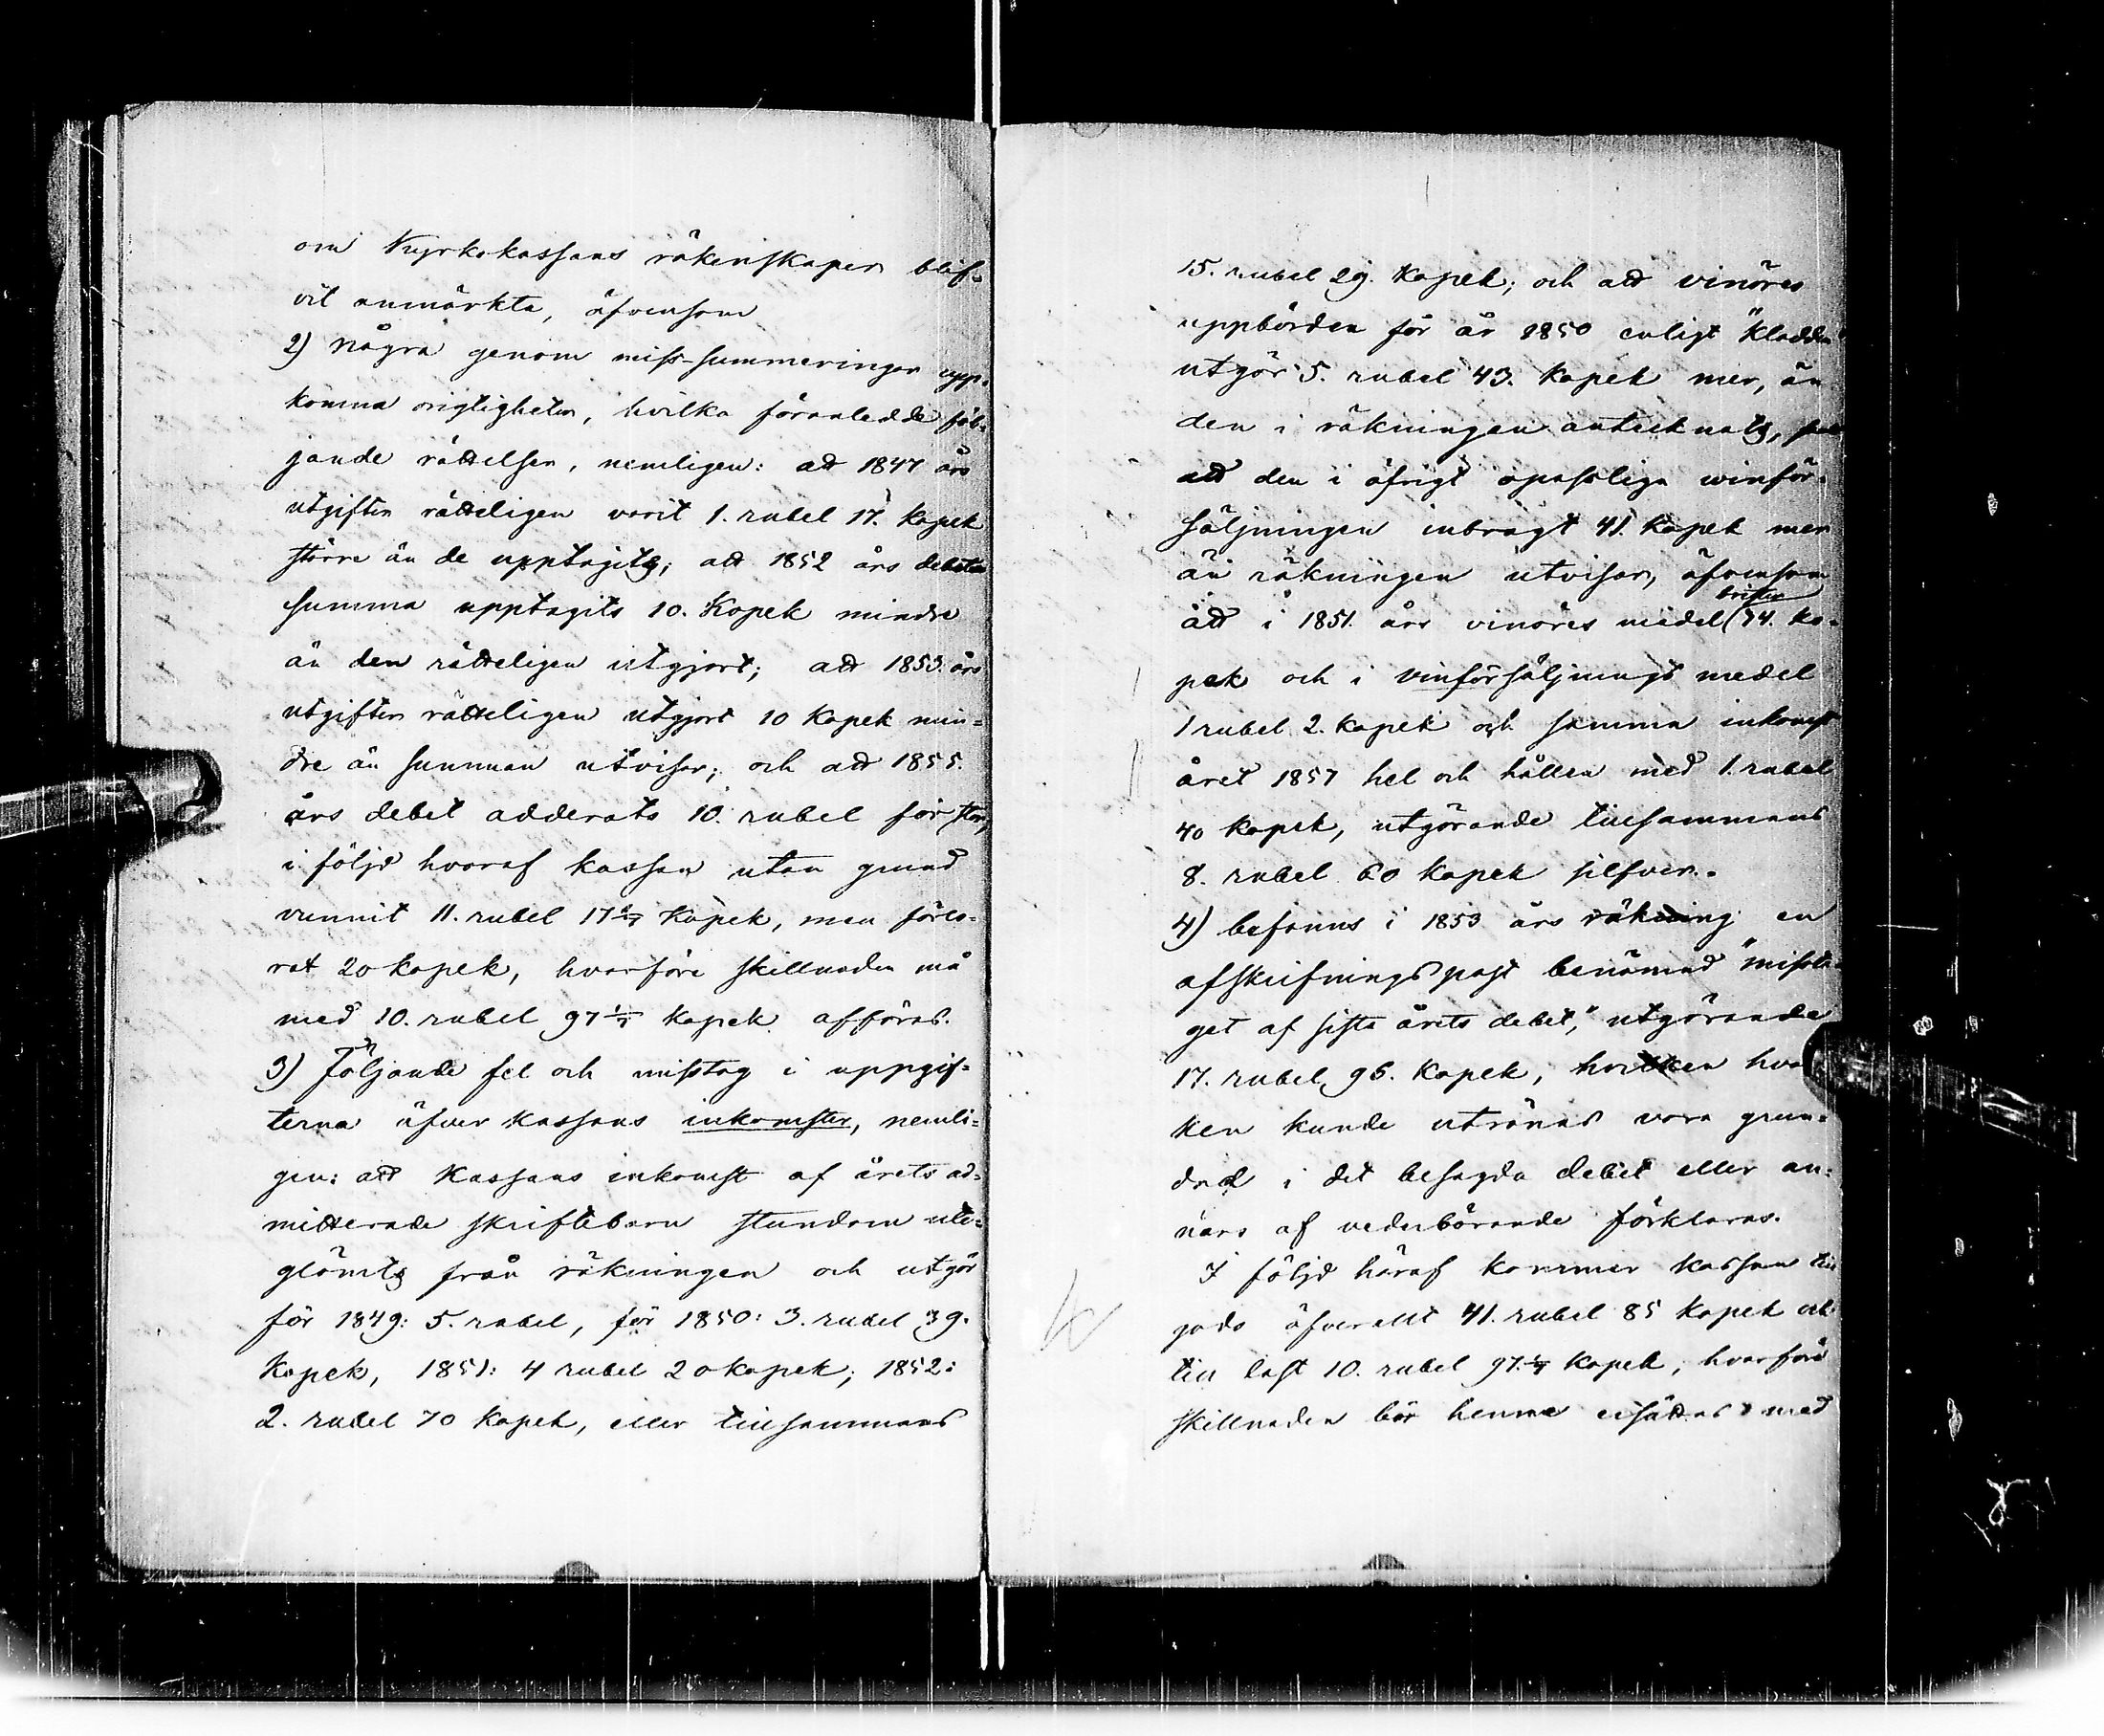 om Kyrkokassans räkenskaper blif-
vit anmärkta, äfvensom
2) några genom miss-summeringar upp-
komna origtigheter, hvilka föranledde föl-
jande rättelser, nemligen: att 1847 års
utgifter rätteligen varit 1. rubel 17. kopek
större än de upptagits; att 1852 års debet
summa upptagits 10. Kopek mindre
än den rätteligen utgjort; att 1853. års
utgifter rätteligen utgjort 10 kopek min-
dre än summan utvisar; och att 1855.
års debet adderats 10. rubel för stor,
i följd hvaraf kassan utan grund
vunnit 11. rubel 17 1/7 Kopek, men förlo-
rat 20 kopek, hvarföre skillnaden må
med 10. rubel 97 1/7 kopek afföras.
3) Följande fel och misstag i uppgif-
terna öfver kassans inkomster, nemli-
gen: att Kassans inkomst af årets ad-
mitterade skriftebarn stundom ute-
glömts från räkningen och utgör
för 1849: 5. rubel, för 1850: 3. rubel 39.
Kopek, 1851: 4 rubel 20 kopek; 1852:
2. rubel 70 kopek, eller tillsammans
15. rubel 29. kopek; och att vinöres
uppbörden för år 1850 enligt "kladden"
utgör 5. rubel 43. kopek mer, än
den i räkningen antecknats,
att den i öfrigt opassliga vinför-
säljningen inbragt 41. kopek mer
än räkningen utvisar, äfvensom
att i 1851. års vinöres medel brister 74. ko-
pek och i vinförsäljnings medel
1 rubel 2. kopek och samma inkomst
året 1857 hel och hållen med 1. rubel
40 kopek, utgörande tillsammans
8. rubel 60 kopek silfver.
4) befanns i 1853 års räkning en
afskrifningspost benämnd "missta-
get af sista årets debet," utgörande
17. rubel 96. kopek, hvilken hvar-
ken kunde utrönas vara grun-
dad i det besagda debet eller an-
nars af vederbörande förklaras.
I följd häraf kommer kassan till
godo öfverallt 41. rubel 85 kopek och
till last 10. rubel 97 1/7 kopek, hvarföre
skillnaden bör henne ersättas med